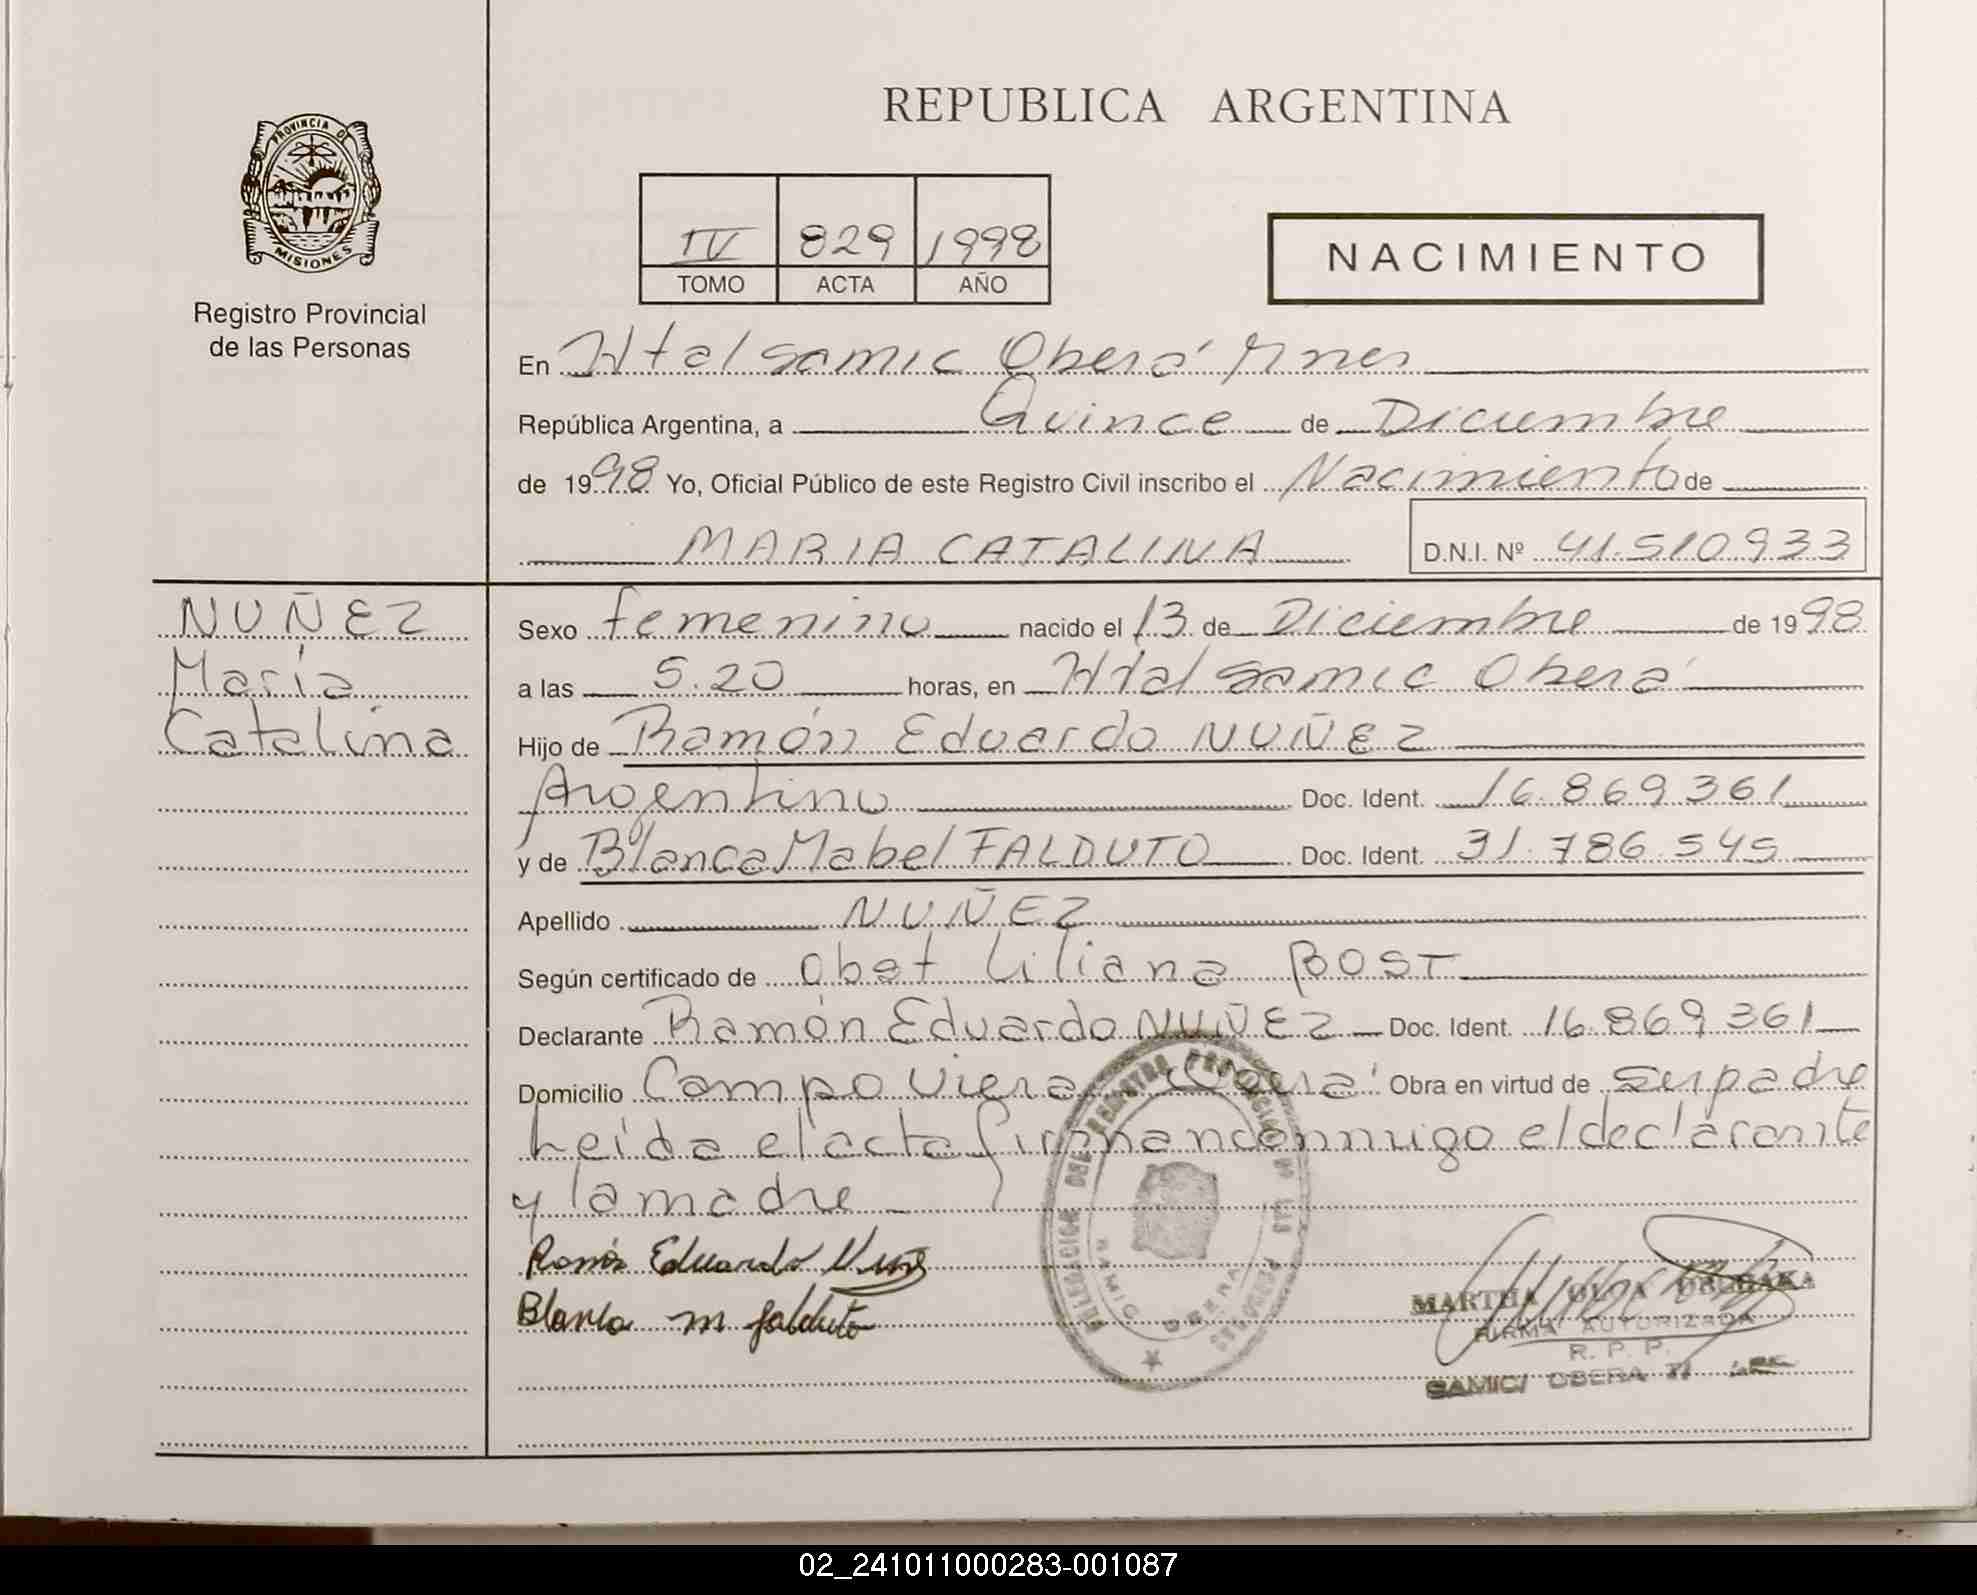 REPUBLICA ARGENTINA
PROVINCIA DE
MISIONES
Registro Provincial
de las Personas
IV 829 1998
TOMO ACTA AÑO
NACIMIENTO
En Htal Samic Oberá Mnes
República Argentina, a Quince de Diciembre
de 1998 Yo, Oficial Público de este Registro Civil inscribo el Nacimiento de
MARIA CATALINA D.N.I. Nº 41.510.933
NUÑEZ
María
Catalina
Sexo femenino nacido el 13 de Diciembre de 1998
a las 5.20 horas, en Htal Samic Oberá
Hijo de Ramón Eduardo NUÑEZ
Argentino Doc. Ident. 16.869.361
y de Blanca Mabel FALDUTO Doc. Ident. 31.786.545
Apellido NUÑEZ
Según certificado de Obst Liliana BOST
Declarante Ramón Eduardo NUÑEZ Doc. Ident. 16.869.361
Domicilio Campo Viera Oberá Obra en virtud de ser padre
Leída el acta firman conmigo el declarante
y la madre
Ramón Eduardo Nuñez
Blanca M Falduto
DELEGACION DEL REGISTRO PROVINCIAL DE LAS PERSONAS
SAMIC OBERA
MARTHA OLGA
FIRMA AUTORIZADA
R. P. P.
SAMIC OBERA
02_241011000283-001087